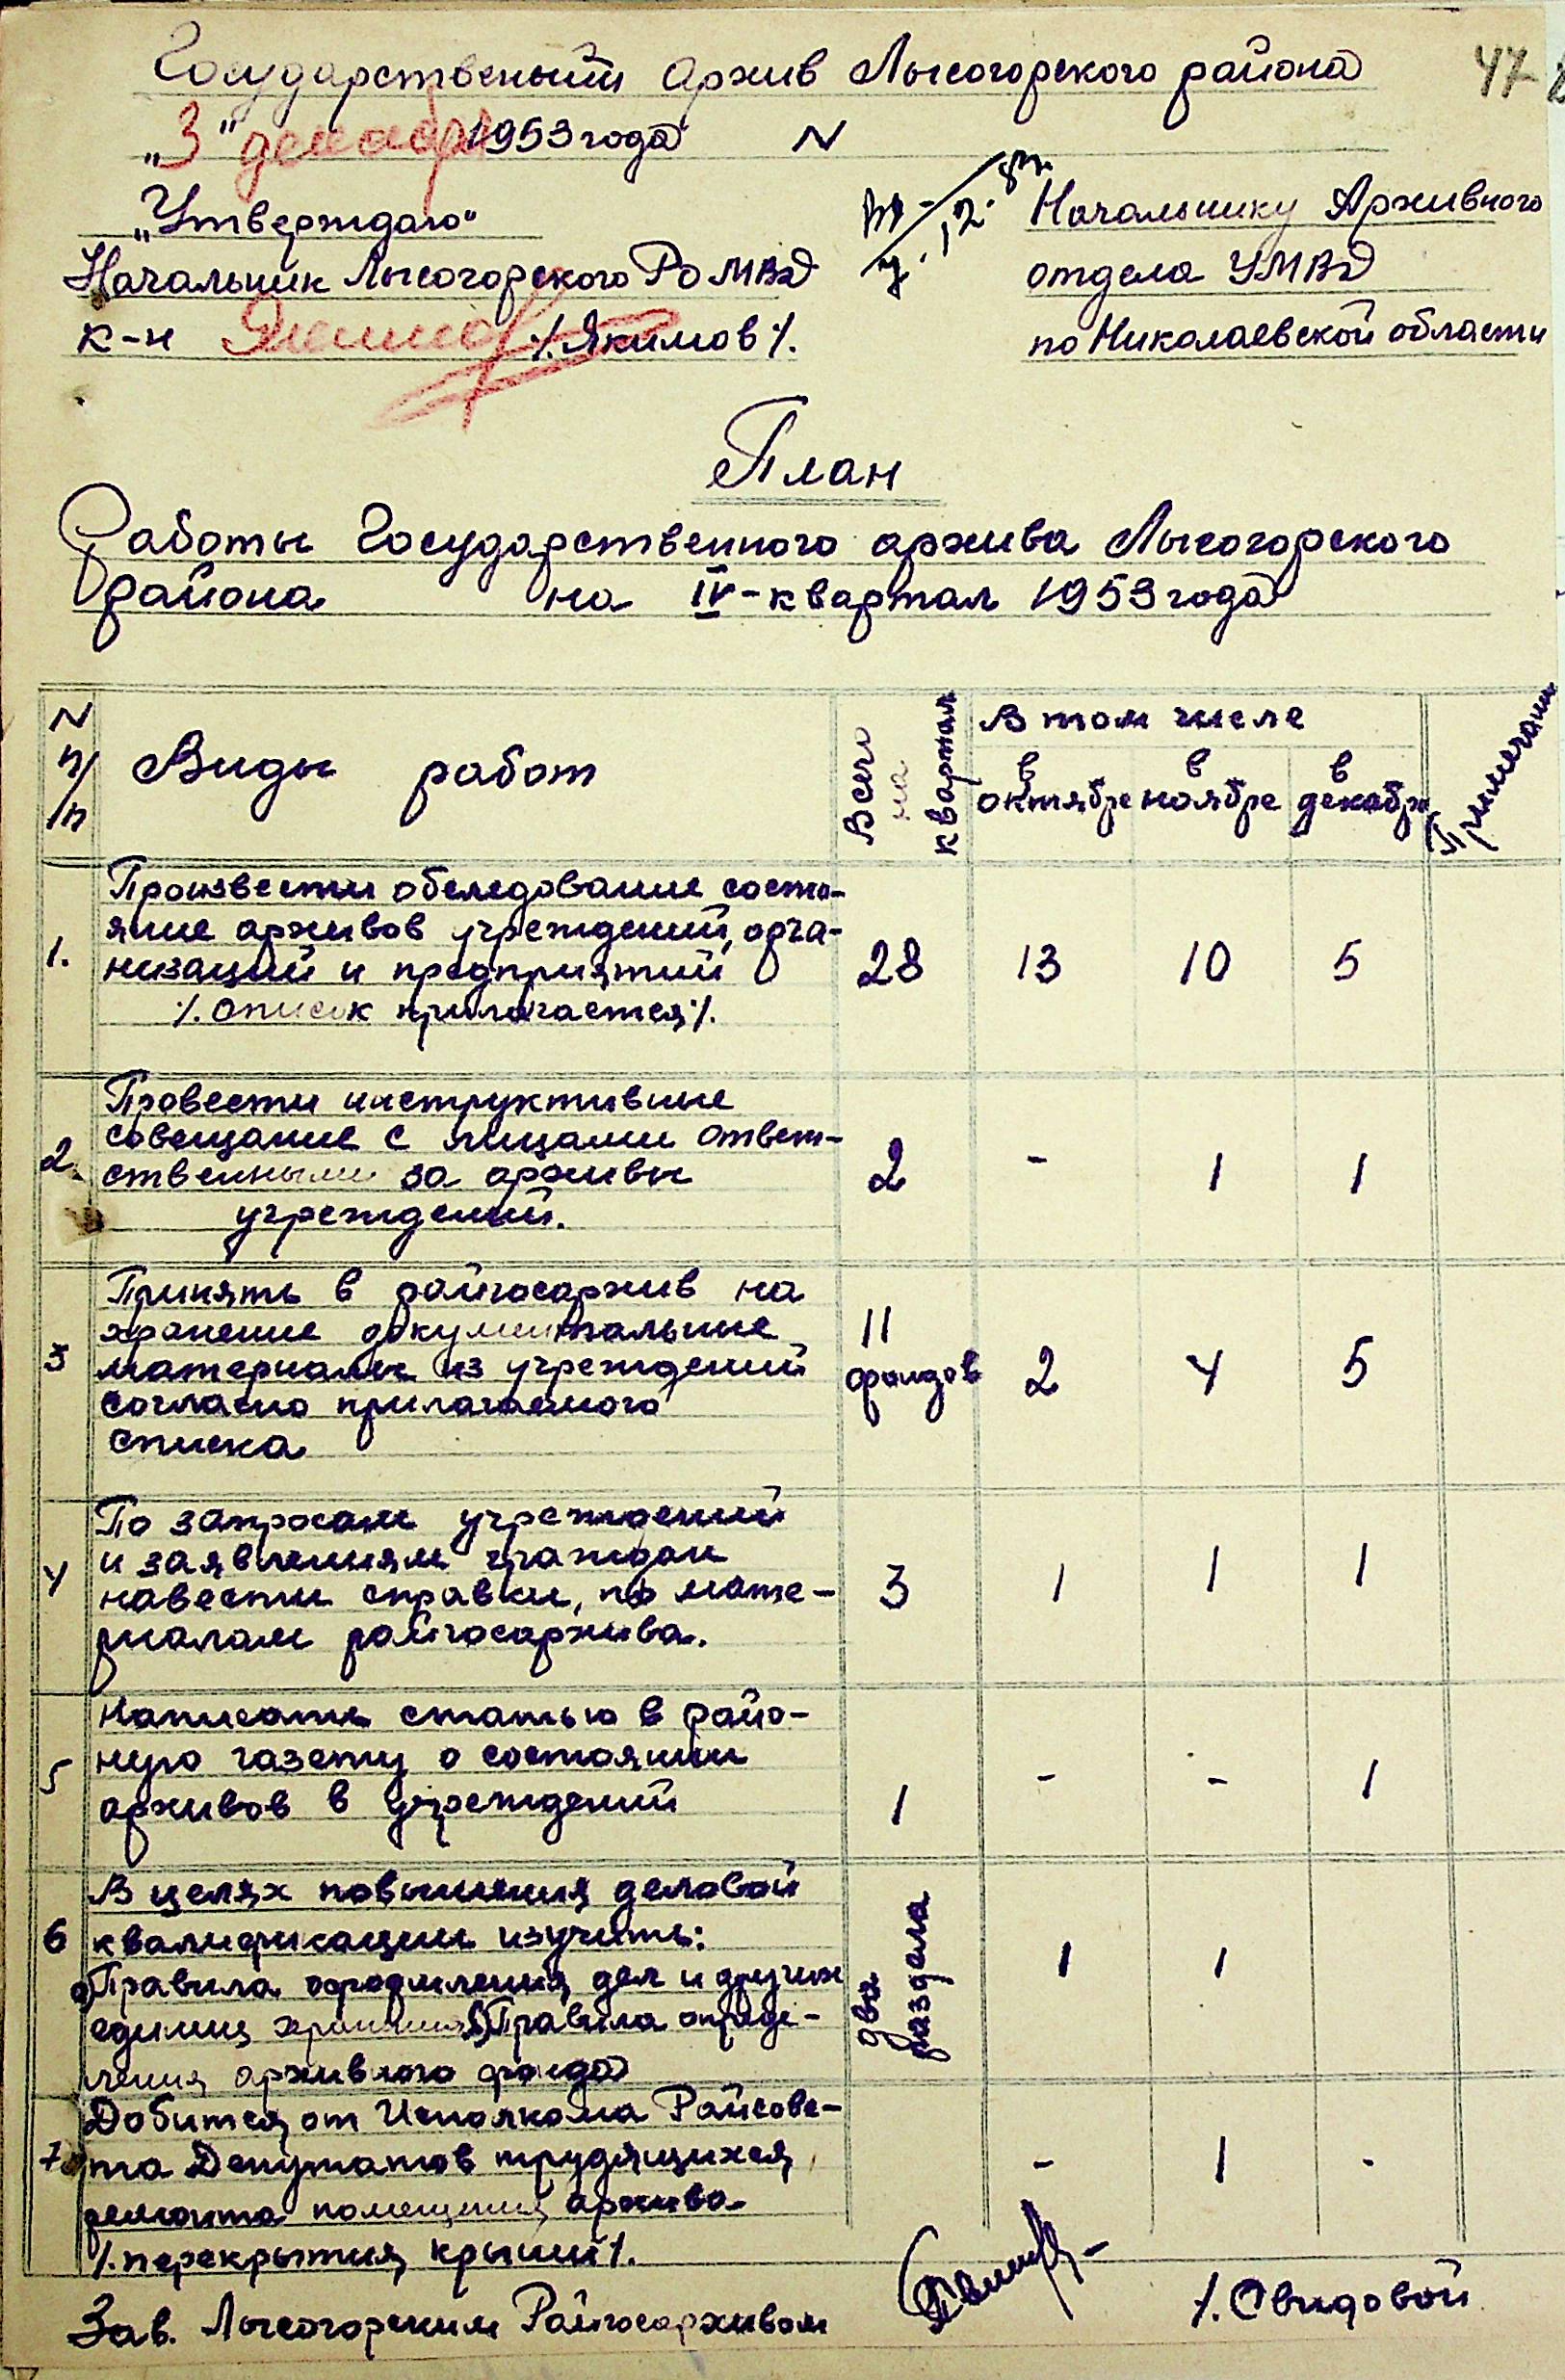 Государственый архив Лысогорского района
47
„3" декабря 1953 года N
„Утверждаю"
Начальник Лысогорского РО МВД
к-н /.Якимов/.
Начальнику Архивного
отдела УМВД
по Николаевской области
План
Работы Государственного архива Лысогорского
района на IV-квартал 1953 года
N п/п
Виды работ
Всего на квартал
В том числе
в октябре
в ноябре
в декабре
Примечани
1.
Произвести обследование состо-
яние архивов учреждений, орга-
низаций и предприятий
/. список прилагается/.
28 13 10 5
2.
Провести инструктивные
совещание с лицами ответ-
ственными за архивы
учреждений.
2 - 1 1
3
Принять в райгосархив на
хранение документальные
материалы из учреждений
согласно прилагаемого
списка
11 фондов 2 4 5
4
По запросам учреждений
и заявлениям граждан
навести справки, по мате-
риалам райгосархива.
3 1 1 1
5
Написать статью в райо-
ную газету о состоянии
архивов в учреждений
1 - - 1
6
В целях повышения деловой
квалификации изучить:
а)Правила оформления дел и других
единиц хранения б)Правила опреде-
ления архивного фонда
два раздела 1 1
7
Добится от Исполкома Райсове-
та Депутатов трудящихся
ремонта помещения архива
/.перекрытия крыши/.
- 1 -
Зав. Лысогорским Райгосархивом
/.Свидовой